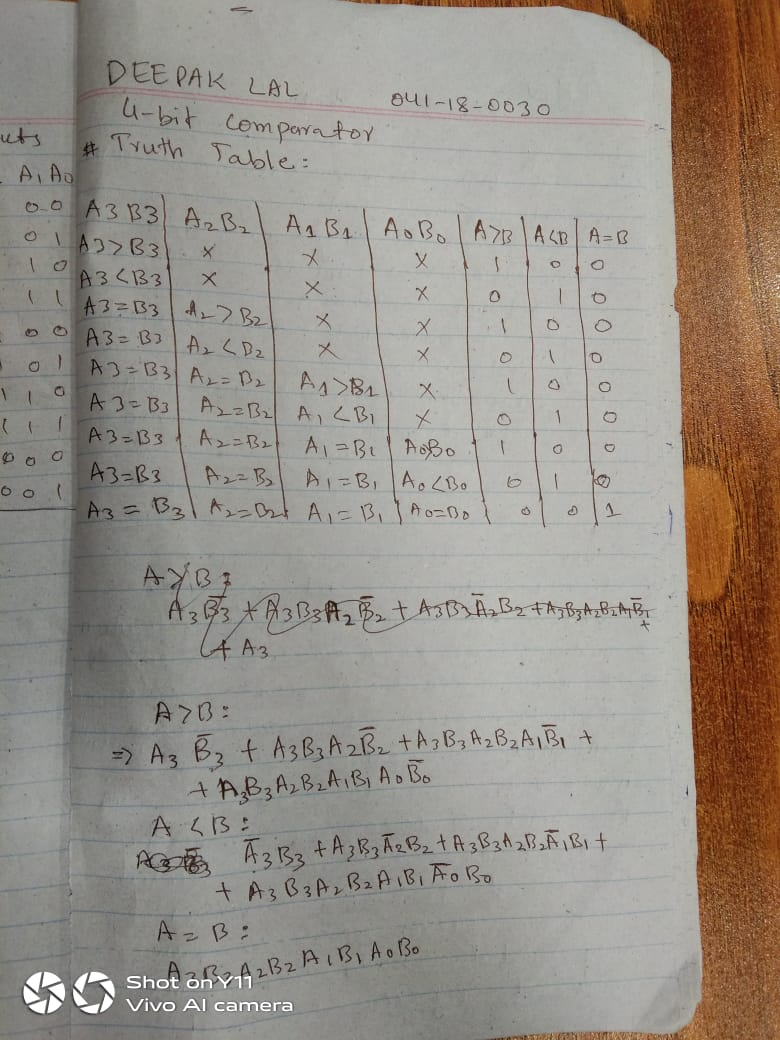 DEEPAK LAL 041-18-0030
4-bit comparator
# Truth Table:
uts
A₁ A₀
0 0
0 1
1 0
1 1
0 0
0 1
1 1 0
1 1 1
0 0 0
0 0 1
A3 B3 | A₂B₂ | A₁ B₁ | A₀B₀ | A>B | A<B | A=B
A3>B3 | × | × | × | 1 | 0 | 0
A3<B3 | × | × | × | 0 | 1 | 0
A3=B3 | A₂>B₂ | × | × | 1 | 0 | 0
A3=B3 | A₂<B₂ | × | × | 0 | 1 | 0
A3=B3 | A₂=B₂ | A₁>B₁ | × | 1 | 0 | 0
A3=B3 | A₂=B₂ | A₁<B₁ | × | 0 | 1 | 0
A3=B3 | A₂=B₂ | A₁=B₁ | A₀B₀ | 1 | 0 | 0
A3=B3 | A₂=B₂ | A₁=B₁ | A₀<B₀ | 0 | 1 | 0
A3=B3 | A₂=B₂ | A₁=B₁ | A₀=B₀ | 0 | 0 | 1
A>B:
A₃B̅₃ + A₃B₃A₂B̅₂ + A₃B₃A̅₂B₂ + A₃B₃A₂B₂A₁B̅₁ +
+ A₃
A>B:
⇒ A₃ B̅₃ + A₃B₃A₂B̅₂ + A₃B₃A₂B₂A₁B̅₁ +
+ A₃B₃A₂B₂A₁B₁A₀B̅₀
A<B:
A̅₃B₃ + A₃B₃A̅₂B₂ + A₃B₃A₂B₂A̅₁B₁ +
+ A₃B₃A₂B₂A₁B₁A̅₀B₀
A = B:
A₃B₃A₂B₂A₁B₁A₀B₀
Shot on Y11
Vivo AI camera